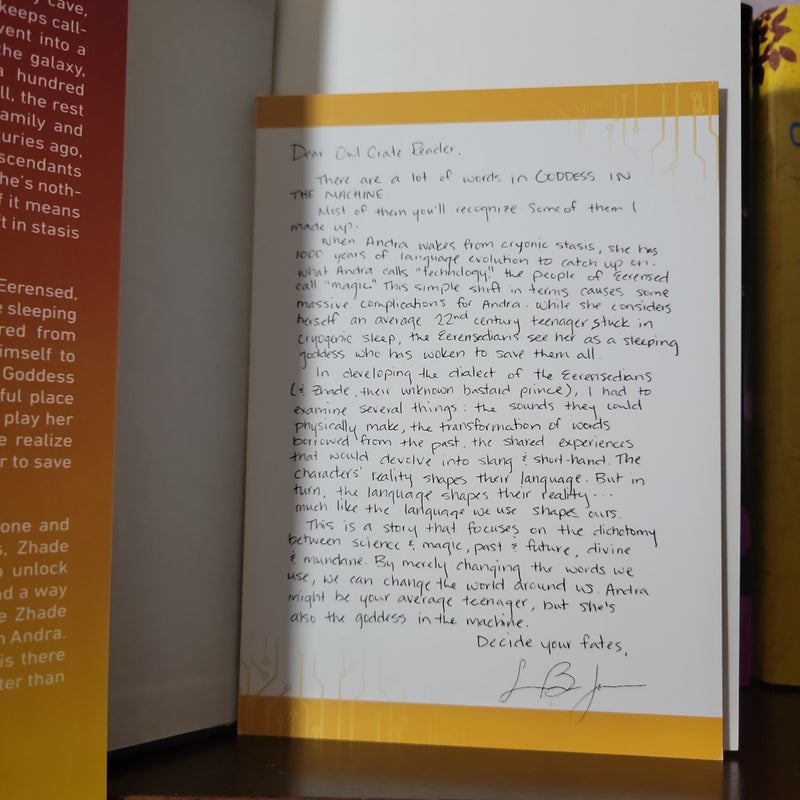 cave,
keeps call-
vent into a
the galaxy,
a hundred
ll, the rest
amily and
turies ago,
scendants
he's noth-
f it means
ft in stasis
Eerensed,
e sleeping
red from
imself to
Goddess
ful place
play her
e realize
r to save
one and
s, Zhade
o unlock
nd a way
e Zhade
n Andra.
is there
ter than
Dear Owl Crate Reader,
There are a lot of words in GODDESS IN
THE MACHINE
Most of them you'll recognize. Some of them I
made up.
When Andra wakes from cryonic stasis, she has
1000 years of language evolution to catch up on.
What Andra calls "technology," the people of Eerensed
call "magic." This simple shift in terms causes some
massive complications for Andra. While she considers
herself an average 22nd century teenager stuck in
cryogenic sleep, the Eerensedians see her as a sleeping
goddess who has woken to save them all.
In developing the dialect of the Eerensedians
(& Zhade, their unknown bastard prince), I had to
examine several things: the sounds they could
physically make, the transformation of words
borrowed from the past, the shared experiences
that would devolve into slang & short-hand. The
characters' reality shapes their language. But in
turn, the language shapes their reality...
much like the language we use shapes ours.
This is a story that focuses on the dichotomy
between science & magic, past & future, divine
& mundane. By merely changing the words we
use, we can change the world around us. Andra
might be your average teenager, but she's
also the goddess in the machine.
Decide your fates,